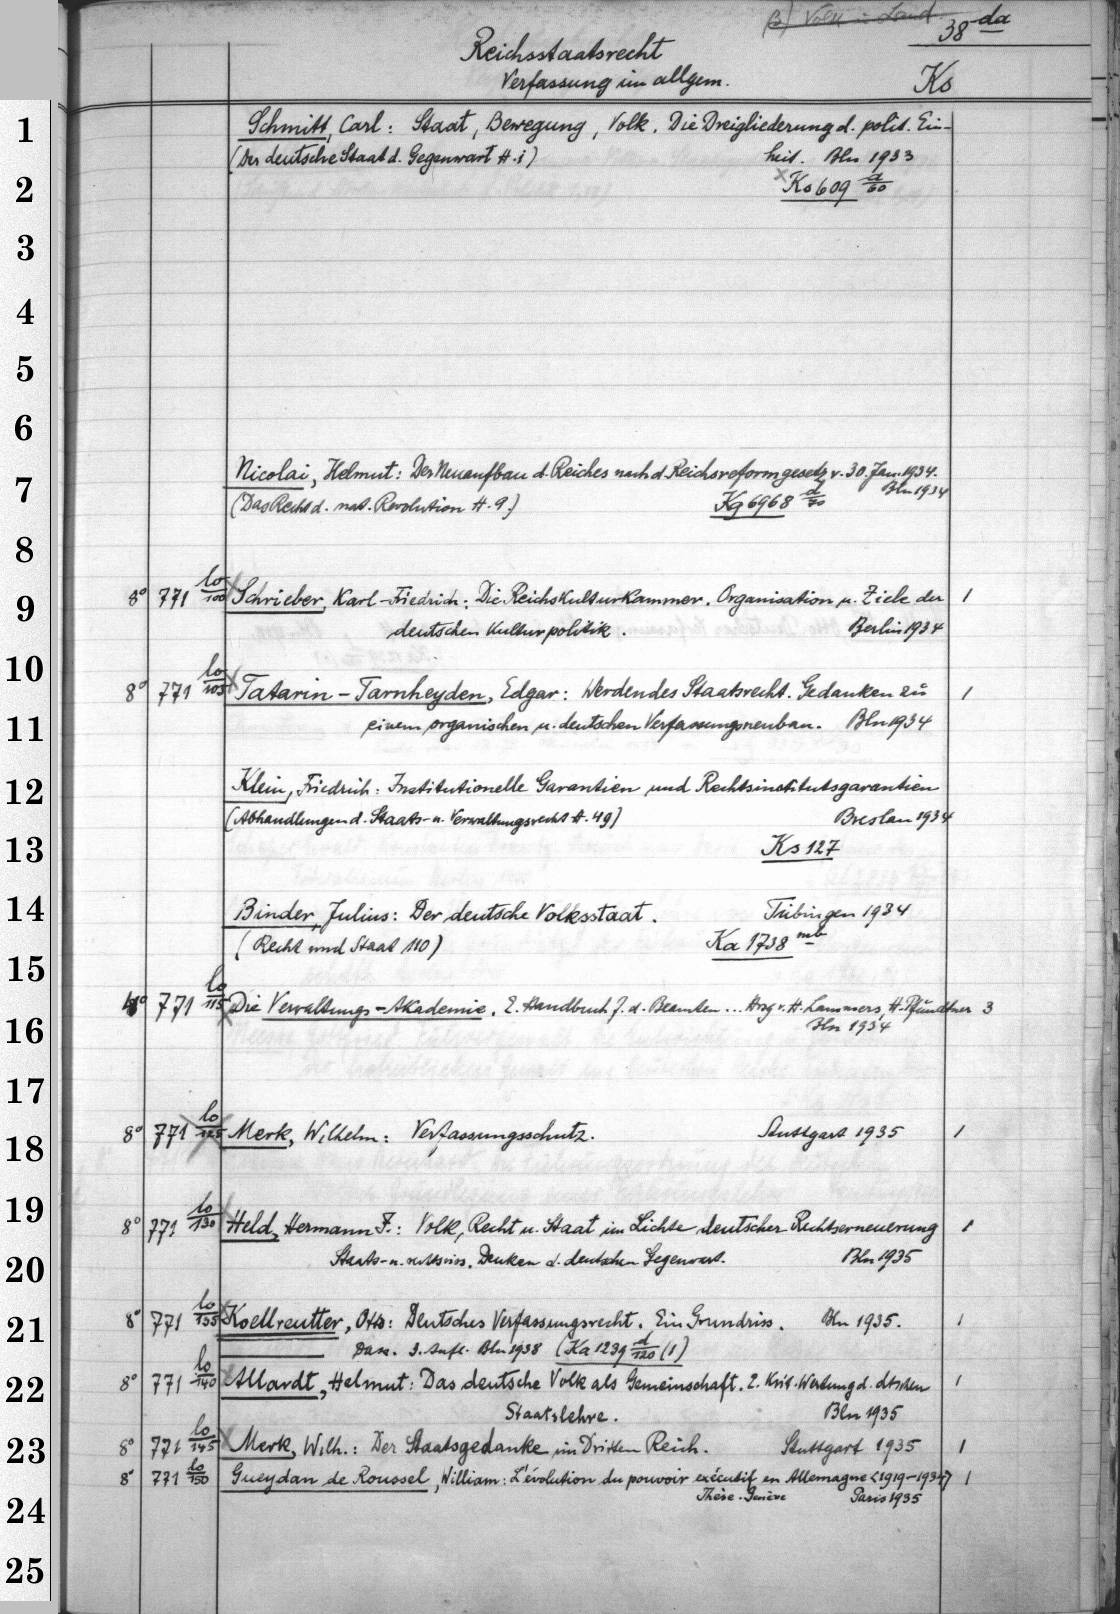 B) Volk u. Land
38 da
Reichsstaatsrecht
Verfassung im allgem.
Ks
1
Schmitt, Carl: Staat, Bewegung, Volk. Die Dreigliederung d. polit. Ein-
(Der deutsche Staat d. Gegenwart H. 1) heit. Bln 1933
2
Ks 609 a/60
3
4
5
6
Nicolai, Helmut: Der Neuaufbau d. Reiches nach d. Reichsreformgesetz v. 30. Jan. 1934.
7
(Das Recht d. nat. Revolution H. 9.) Kq 6968 d/70 Bln 1934
8
8° 771 lo/100 Schrieber, Karl-Friedrich: Die Reichskulturkammer. Organisation u. Ziele der 1
9
deutschen Kulturpolitik. Berlin 1934
10
8° 771 lo/105 Tatarin-Tarnheyden, Edgar: Werdendes Staatsrecht. Gedanken zu 1
11
einem organischen u. deutschen Verfassungsneubau. Bln 1934
12
Klein, Friedrich: Institutionelle Garantien und Rechtsinstitutsgarantien
(Abhandlungen d. Staats- u. Verwaltungsrecht H. 49) Breslau 1934
13
Ks 127
14
Binder, Julius: Der deutsche Volksstaat. Tübingen 1934
(Recht und Staat 110) Ka 1738 mb
15
4° 771 lo/115 Die Verwaltungs-Akademie. E. Handbuch f. d. Beamten ... Hrsg v. H. Lammers, H. Pfundtner 3
16
Bln 1934
17
8° 771 lo/125 Merk, Wilhelm: Verfassungsschutz. Stuttgart 1935 1
18
19
8° 771 lo/130 Held, Hermann F.: Volk, Recht u. Staat im Lichte deutscher Rechtserneuerung 1
Staats- u. rechtswiss. Denken d. deutschen Gegenwart. Bln 1935
20
8° 771 lo/135 Koellreutter, Otto: Deutsches Verfassungsrecht. Ein Grundriss. Bln 1935. 1
21
Dass. 3. Aufl. Bln 1938 (Ka 1239 d/120 (1)
22
8° 771 lo/140 Allardt, Helmut: Das deutsche Volk als Gemeinschaft. E. Krit. Wertung d. dtschen 1
Staatslehre. Bln 1935
23
8° 771 lo/145 Merk, Wilh.: Der Staatsgedanke im Dritten Reich. Stuttgart 1935 1
8° 771 lo/150 Gueydan de Roussel, William: L'évolution du pouvoir exécutif en Allemagne (1919-1934) 1
24
Thèse. Genève Paris 1935
25